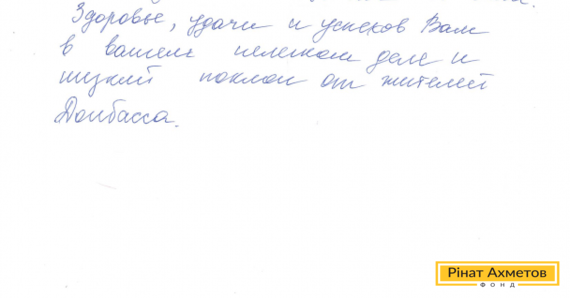 Здоровье, удачи и успехов Вам
в вашем нелегком деле и
низкий поклон от жителей
Донбасса.
Рінат Ахметов
ФОНД